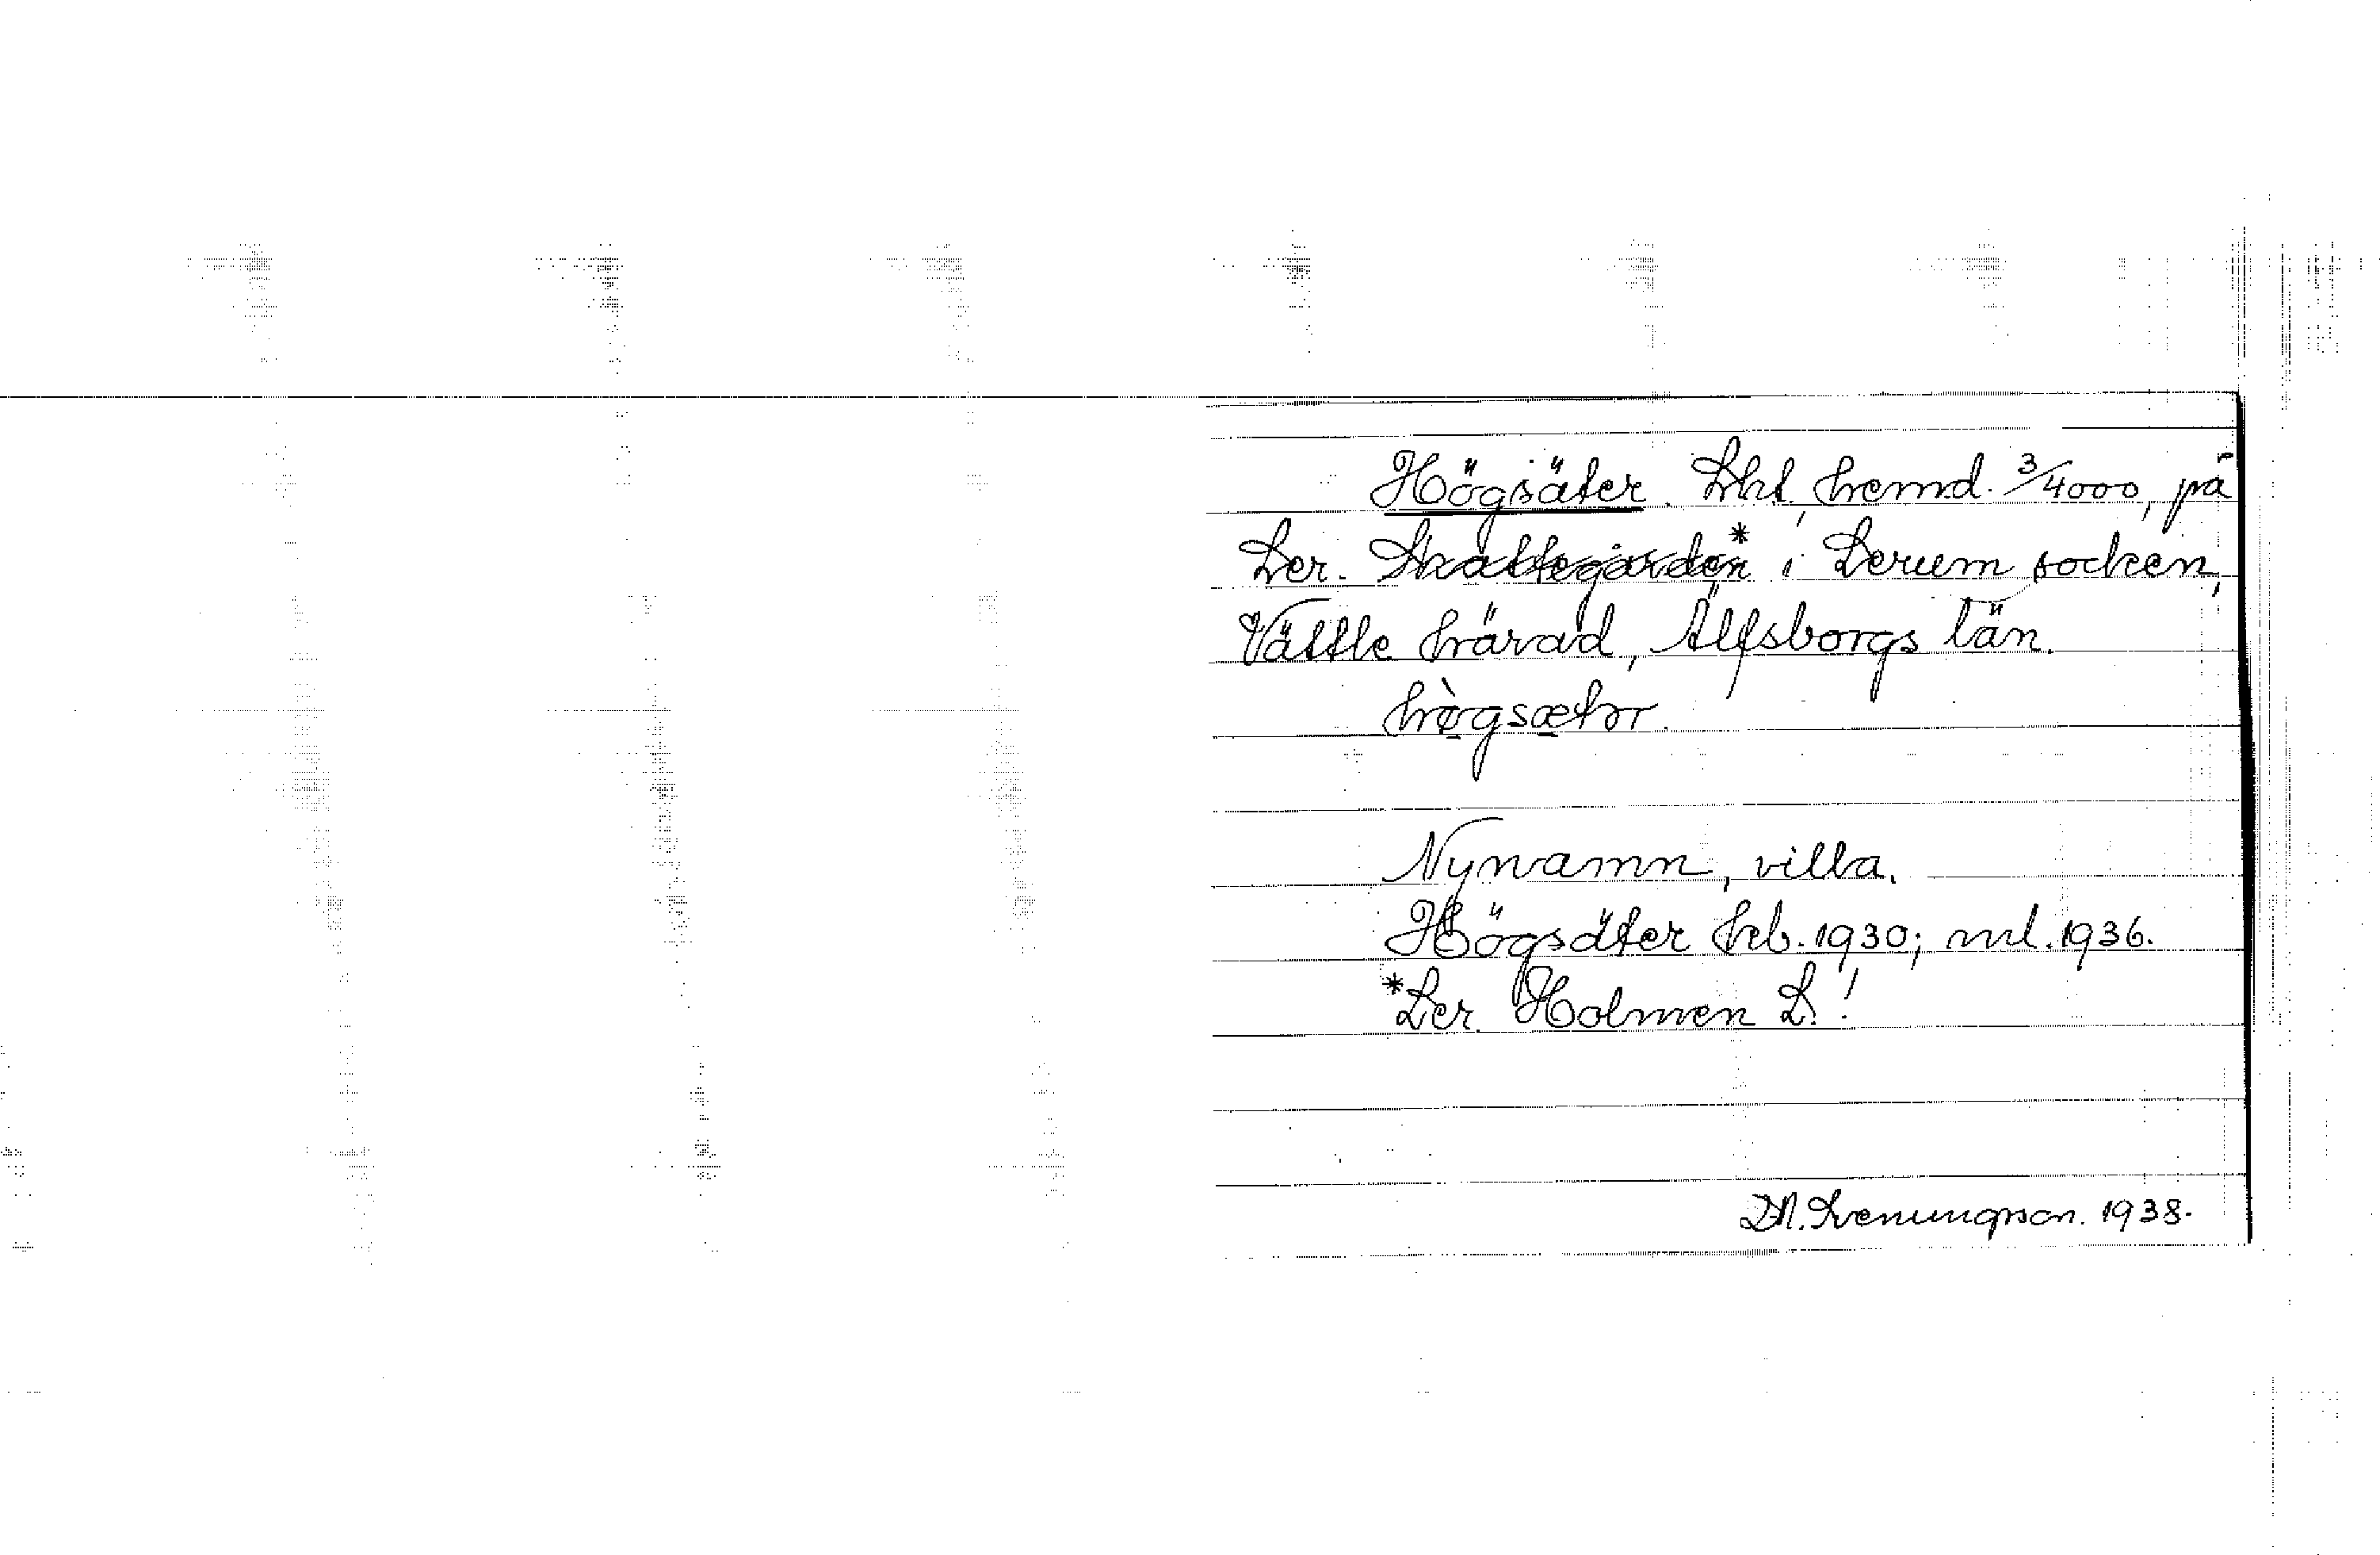 Högsäter. Skt, hemd. 3/4000, på
Ler. Skattegården* i Lerum socken,
Vättle härad, Älfsborgs län.
hø̀gsætər.
Nynamn, villa.
Högsäter hfb. 1930; ml. 1936.
*Ler. Holmen L.!
1938.